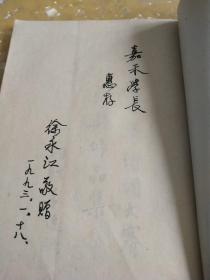 嘉禾学長
惠存
徐永江敬贈
一九九三.一.十八.